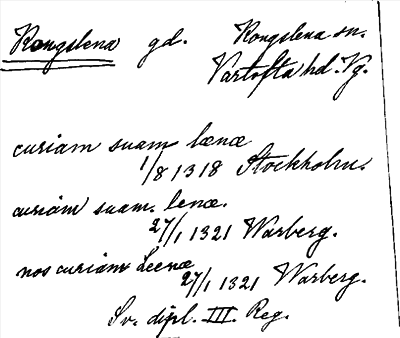 Kongslena gd. Kongslena sn.
Vartofta hd. Vg.
curiam suam lænæ
1/8 1318 Stockholm.
curiam suam lenæ.
27/1 1321 Warberg.
nos curiam Leenæ
27/1 1321 Warberg.
Sv. dipl. III. Reg.